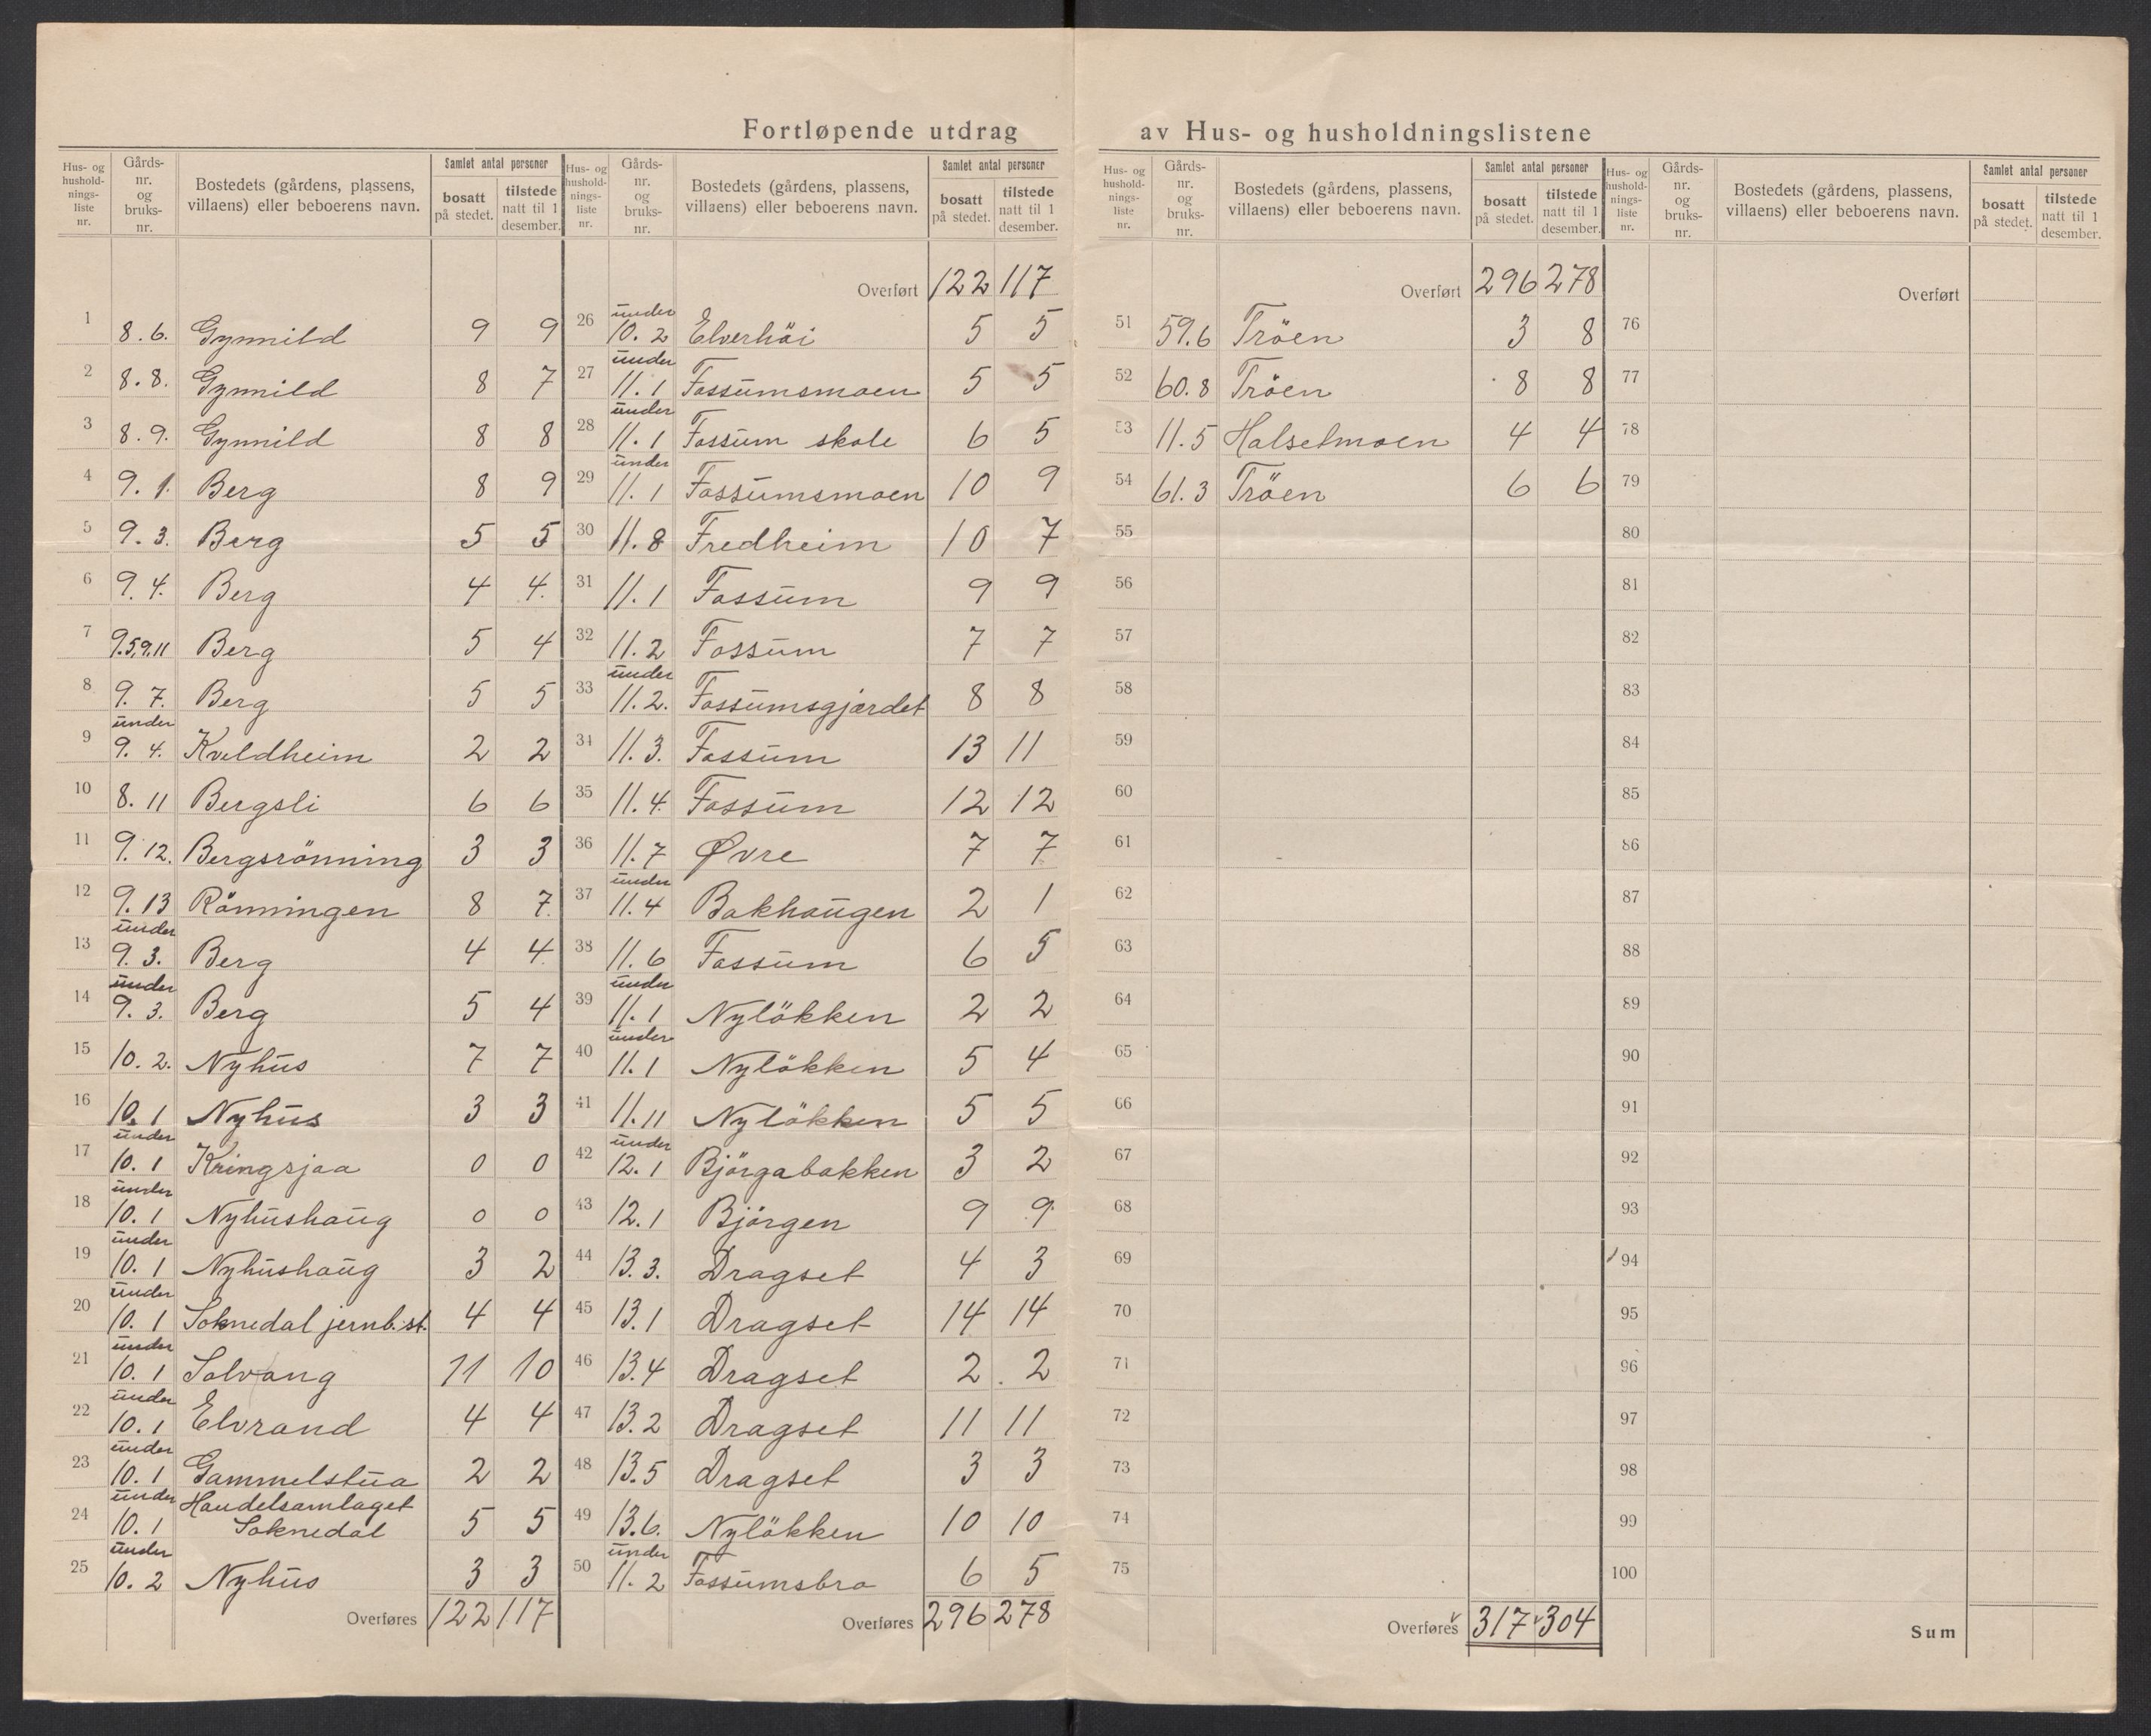 Fortløpende utdrag av Hus- og husholdningslistene
Hus- og husholdningsliste nr. | Gårdsnr. og bruksnr. | Bostedets (gårdens, plassens, villaens) eller beboerens navn. | Samlet antal personer | bosatt på stedet. | tilstede natt til 1 desember.
1 8.6. Gynnild 9 9
2 8.8. Gynnild 8 7
3 8.9. Gynnild 8 8
4 9.1. Berg 8 9
5 9.3. Berg 5 5
6 9.4. Berg 4 4.
7 9.5,9.11 Berg 5 4
8 9.7. Berg 5 5
9 under 9.4. Kveldheim 2 2
10 8.11 Bergsli 6 6
11 9.12. Bergsrönning 3 3
12 9.13 Rönningen 8 7.
13 under 9.3. Berg 4 4
14 under 9.3. Berg 5 4
15 10.2. Nyhus 7 7
16 10.1 Nyhus 3 3
17 under 10.1 Kringsjaa 0 0
18 under 10.1 Nyhushaug 0 0
19 under 10.1 Nyhushaug 3 2
20 under 10.1 Soknedal jernb.st. 4 4
21 under 10.1 Solvang 11 10
22 under 10.1 Elvrand 4 4
23 under 10.1 Gammelstua 2 2
24 under 10.1 Handelsamlaget Soknedal 5 5
25 under 10.2 Nyhus 3 3
Overføres 122 117
Hus- og husholdningsliste nr. | Gårdsnr. og bruksnr. | Bostedets (gårdens, plassens, villaens) eller beboerens navn. | Samlet antal personer | bosatt på stedet. | tilstede natt til 1 desember.
Overført 122 117
26 under 10.2 Elverhöi 5 5
27 under 11.1 Fossumsmoen 5 5
28 under 11.1 Fossum skole 6 5
29 under 11.1 Fossumsmoen 10 9
30 11.8 Fredheim 10 7
31 11.1 Fossum 9 9
32 11.2 Fossum 7 7
33 under 11.2. Fossumsgjærdet 8 8
34 11.3. Fossum 13 11
35 11.4. Fossum 12 12
36 11.7 Øvre 7 7
37 under 11.4 Bakhaugen 2 1
38 11.6 Fossum 6 5
39 under 11.1 Nylökken 2 2
40 under 11.1 Nylökken 5 4
41 11.11 Nylökken 5 5
42 under 12.1 Björgabakken 3 2
43 12.1 Björgen 9 9.
44 13.3. Dragset 4 3
45 13.1 Dragset 14 14
46 13.4 Dragset 2 2
47 13.2 Dragset 11 11
48 13.5 Dragset 3 3
49 13.6. Nylökken 10 10
50 under 11.2 Fossumsbro 6 5
Overføres 296 278
Hus- og husholdningsliste nr. | Gårdsnr. og bruksnr. | Bostedets (gårdens, plassens, villaens) eller beboerens navn. | Samlet antal personer | bosatt på stedet. | tilstede natt til 1 desember.
Overført 296 278
51 59.6 Tröen 3 8
52 60.8 Tröen 8 8
53 11.5 Halsetmoen 4 4
54 61.3 Tröen 6 6
55
56
57
58
59
60
61
62
63
64
65
66
67
68
69
70
71
72
73
74
75
Overføres 317 304
Hus- og husholdningsliste nr. | Gårdsnr. og bruksnr. | Bostedets (gårdens, plassens, villaens) eller beboerens navn. | Samlet antal personer | bosatt på stedet. | tilstede natt til 1 desember.
Overført
76
77
78
79
80
81
82
83
84
85
86
87
88
89
90
91
92
93
94
95
96
97
98
99
100
Sum